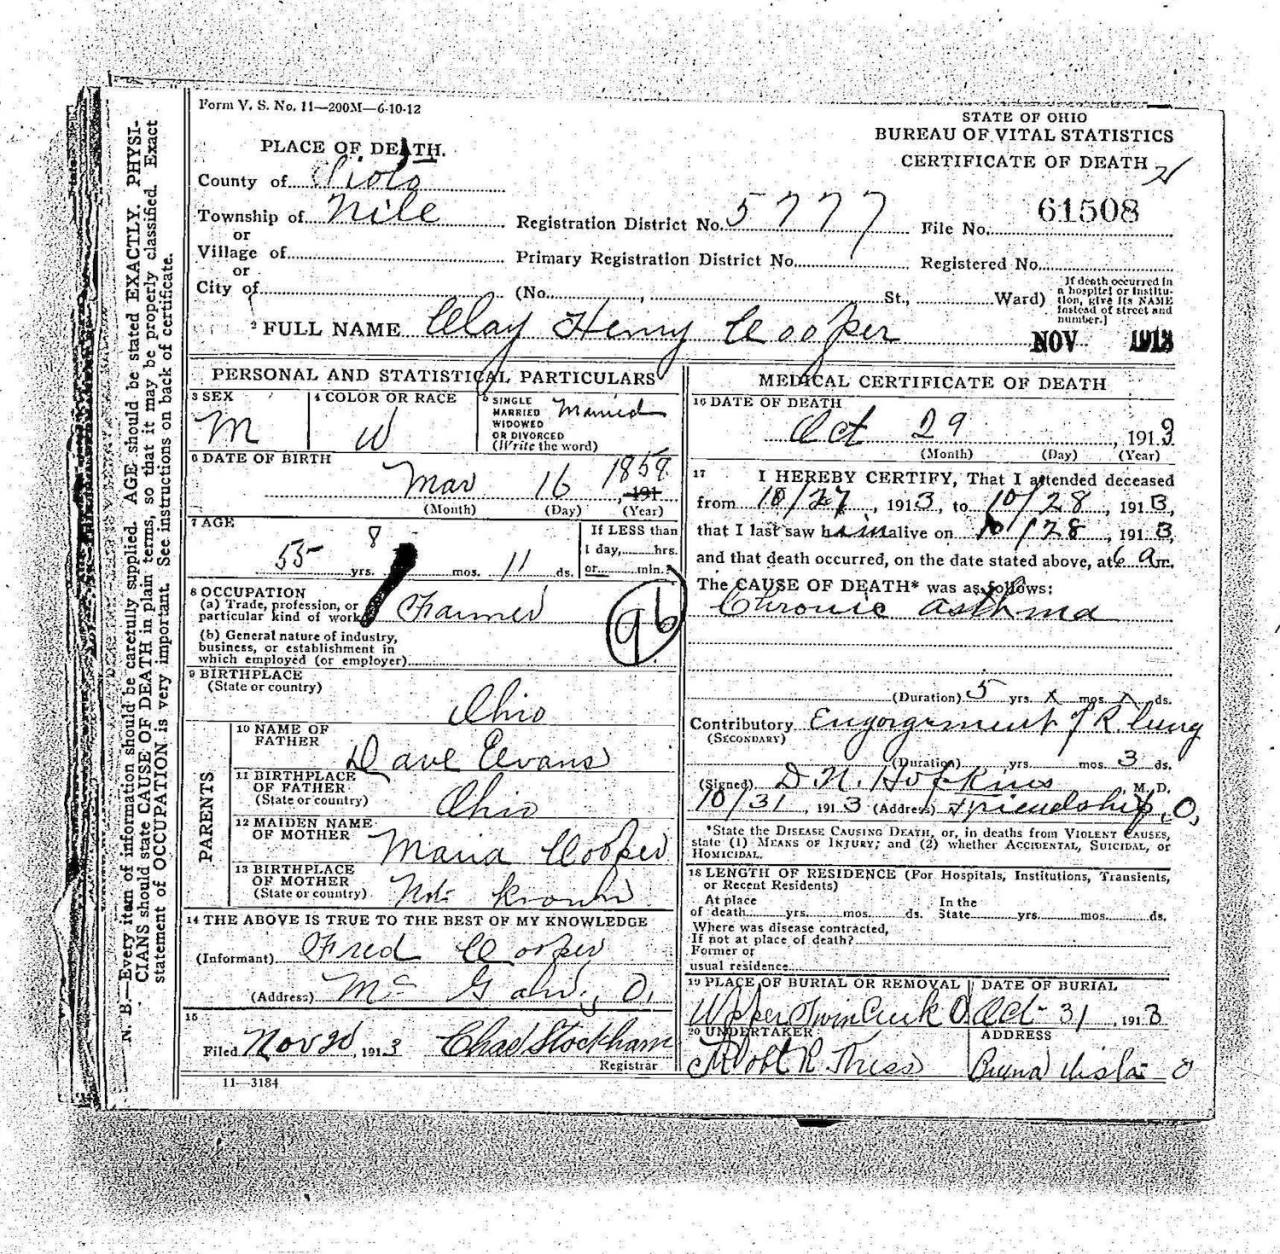 Form V. S. No. 11—200M—6-10-12
STATE OF OHIO
BUREAU OF VITAL STATISTICS
CERTIFICATE OF DEATH
PLACE OF DEATH.
County of Sioto
Township of Nile
Registration District No. 5777
File No. 61508
or
Village of
Primary Registration District No.
Registered No.
or
City of
(No. , St., Ward)
If death occurred in
a hospital or institu-
tion, give its NAME
instead of street and
number.]
2 FULL NAME Clay Henry Cooper
NOV 1913
PERSONAL AND STATISTICAL PARTICULARS
3 SEX
M
4 COLOR OR RACE
W
5 SINGLE
MARRIED
WIDOWED
OR DIVORCED
(Write the word)
Married
6 DATE OF BIRTH
Mar 16 1858
191
(Month) (Day) (Year)
7 AGE
55 yrs. 8 mos. 11 ds.
If LESS than
1 day, hrs.
or min.?
8 OCCUPATION
(a) Trade, profession, or
particular kind of work Farmer
96
(b) General nature of industry,
business, or establishment in
which employed (or employer)
9 BIRTHPLACE
(State or country)
Ohio
PARENTS
10 NAME OF
FATHER
Dave Evans
11 BIRTHPLACE
OF FATHER
(State or country)
Ohio
12 MAIDEN NAME
OF MOTHER
Maria Cooper
13 BIRTHPLACE
OF MOTHER
(State or country)
Not known
14 THE ABOVE IS TRUE TO THE BEST OF MY KNOWLEDGE
(Informant) Fred Cooper
(Address) Mc Gaw, O.
15
Filed Nov 20, 1913 Chas Stockham
Registrar
11—3184
MEDICAL CERTIFICATE OF DEATH
16 DATE OF DEATH
Oct 29, 1913
(Month) (Day) (Year)
17 I HEREBY CERTIFY, That I attended deceased
from 10/27, 1913, to 10/28, 1913,
that I last saw him alive on 10/28, 1913,
and that death occurred, on the date stated above, at 6 am.
The CAUSE OF DEATH* was as follows:
Chronic asthma
(Duration) 5 yrs. x mos. x ds.
Contributory Engorgement of R. lung
(SECONDARY)
(Duration) yrs. mos. 3 ds.
(Signed) D. N. Hopkins M. D.
10/31, 1913 (Address) Friendship, O.
*State the DISEASE CAUSING DEATH, or, in deaths from VIOLENT CAUSES,
state (1) MEANS OF INJURY; and (2) whether ACCIDENTAL, SUICIDAL, or
HOMICIDAL.
18 LENGTH OF RESIDENCE (For Hospitals, Institutions, Transients,
or Recent Residents)
At place In the
of death yrs. mos. ds. State yrs. mos. ds.
Where was disease contracted,
If not at place of death?
Former or
usual residence
19 PLACE OF BURIAL OR REMOVAL
Upper Twin Creek O
DATE OF BURIAL
Oct 31, 1913
20 UNDERTAKER
ADDRESS
Buena Vista O
N. B.—Every item of information should be carefully supplied. AGE should be stated EXACTLY. PHYSI-
CIANS should state CAUSE OF DEATH in plain terms, so that it may be properly classified. Exact
statement of OCCUPATION is very important. See instructions on back of certificate.